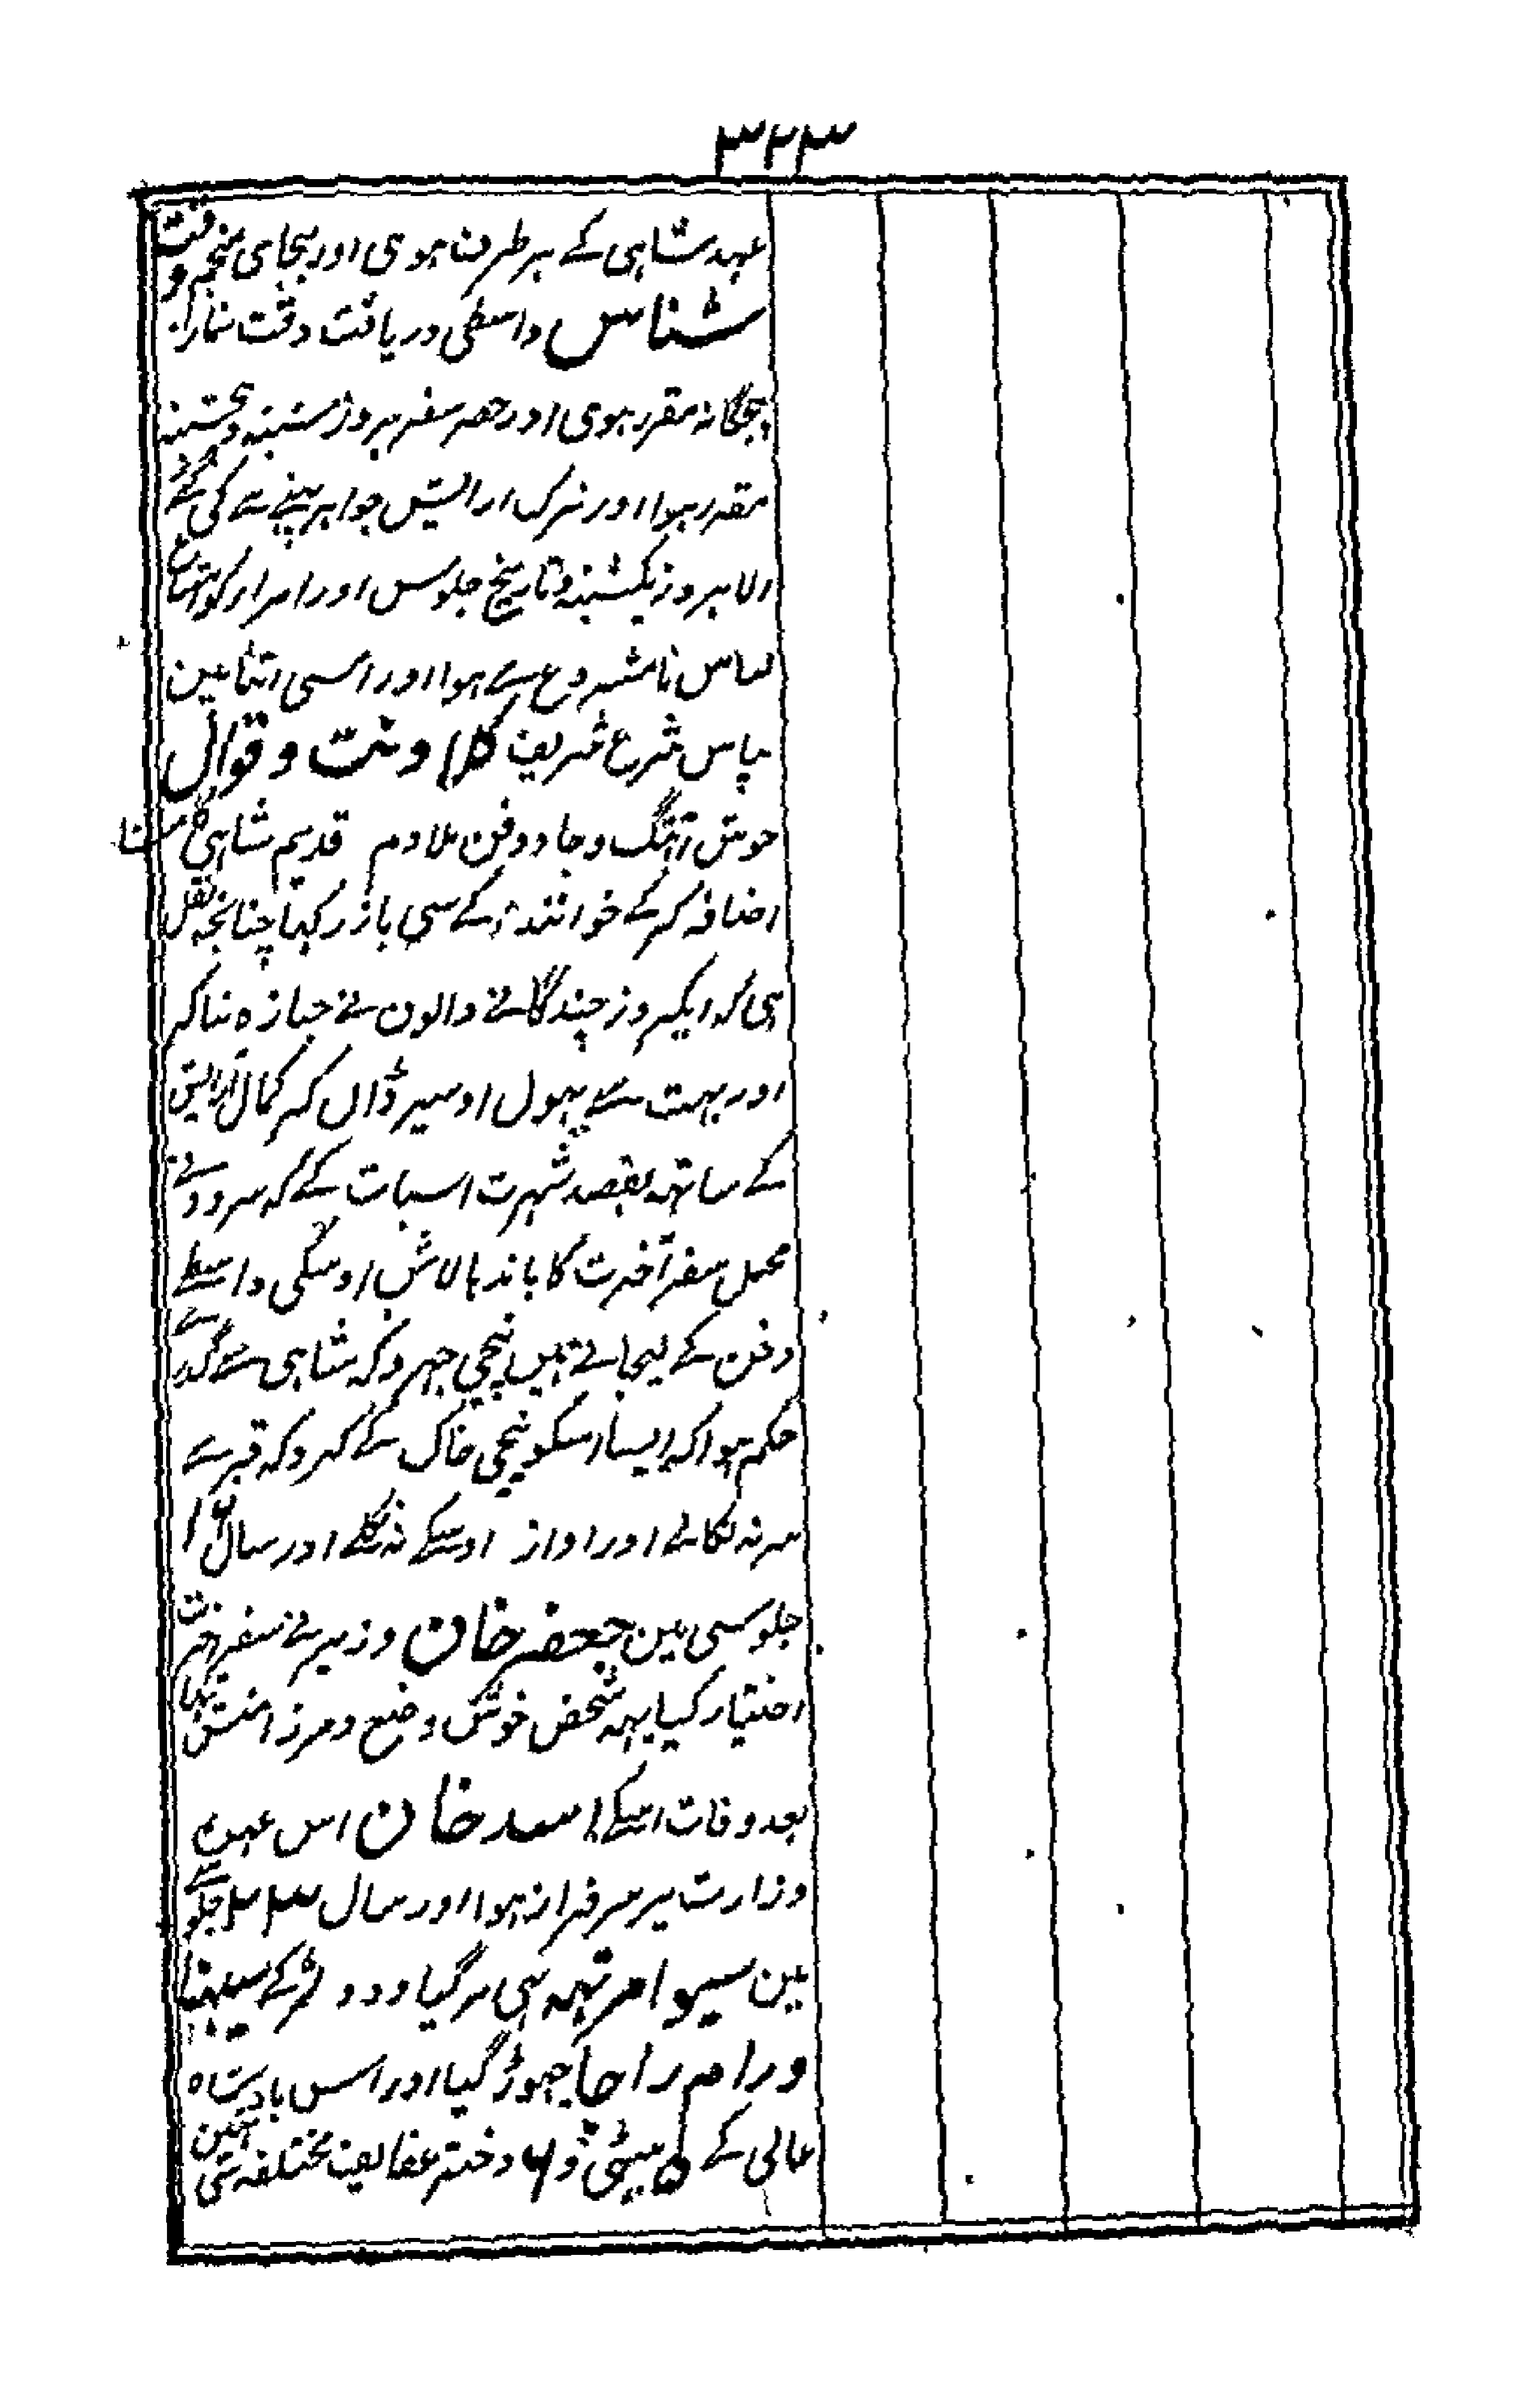 ۳۲۳
عہد شاہی کے برطرف ہوی اور بجای منجم وقت
شناس واسطی دریافت وقت نماز
پنجگانہ مقرر ہوی اور حصر سفر بروز شنبہ و پنجشنبہ
مقرر ہوا اور ترک ارایش جواہر پہننے سے کی گئے
الا بروز یکشنبہ و تاریخ جلوس اور امراء کو امتناع
لباس نامشروع سے ہوا اور اسی اثنا مین
بپاس شرع شریف کلاونت و قوال
خوش آہنگ و جادو فن ملازم قدیم شاہی کا
اضافہ کر کے خوانندگے سی باز رکہا چنانچہ نقل
ہی کہ ایکروز چند گانے والون نے جنازہ بنا کر
اور بہت سے پہول اوسپر ڈال کر کمال آرایش
کے ساتہہ بقصد شہرت اسبات کے کہ سرود نے
محمل سفر آخرت کا باندہا لاش اوسکی واسطے
دفن کے لیجاتے ہیں نیچی جہروکہ شاہی سے گذرے
حکم ہوا کہ ایسا اسکو نیچی خاک کے کرو کہ قبر سے
سر نہ نکالے اور اواز اوسکے نہ نکلے اور سال
جلوسی مین جعفر خان وزیر نے سفر اخرت
اختیار کیا یہہ شخص خوش وضع و مرزا منش تہا
بعد وفات اسکے اسد خان اس عہدہ
وزارت پر سرفراز ہوا اور سال ۲۳ جلوسے
مین سیوا مرہٹہ بہی مر گیا و دو لڑکے سنبہا
و رام راجا چہوڑ گیا اور اس بادشاہ
عالی کے ۵ بیٹی و ۶ دختر عفایف مختلفہ سی